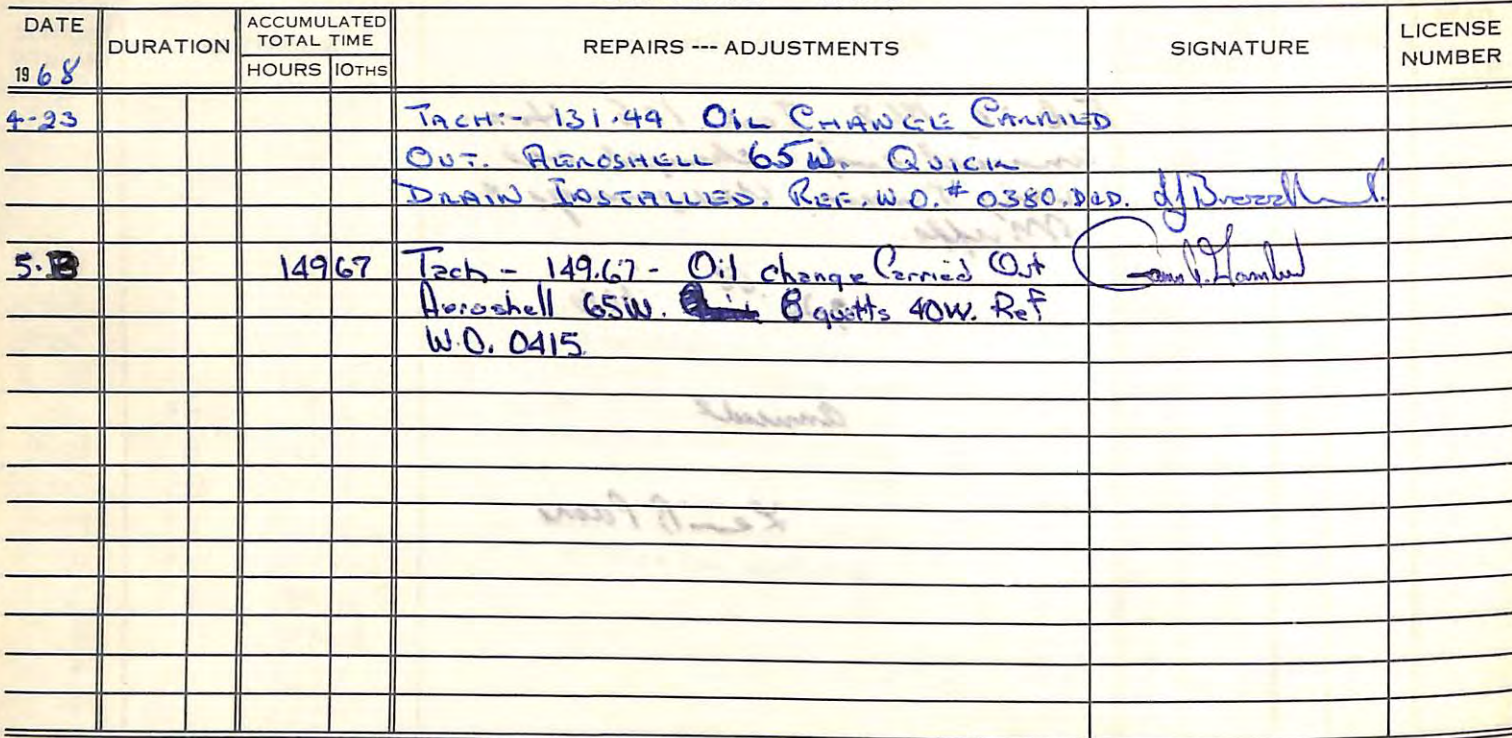 DATE DURATION ACCUMULATED TOTAL TIME REPAIRS --- ADJUSTMENTS SIGNATURE LICENSE NUMBER
1968 HOURS 10THS
4-23 TACH:- 131.44 OIL CHANGE CARRIED
OUT. AEROSHELL 65W. QUICK
DRAIN INSTALLED. REF. W.O. # 0380. D&D.
5. 149 67 Tach - 149.67 - Oil change Carried Out
Aeroshell 65W. 8 quatts 40W. Ref
W.O. 0415.